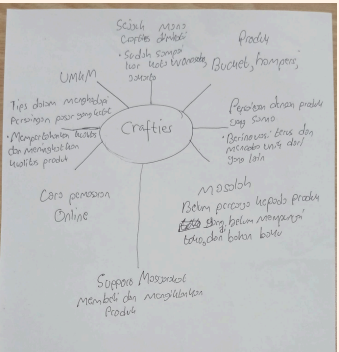 Sejauh Mana
Crafties dikenal
• Sudah sampai
luar kota Wonosobo,
Produk
Bucket, hampers,
UMKM
Tips dalam menghadapi
Persaingan pasar yang ketat
• Mempertahankan kualitas
dan meningkatkan
kualitas produk
Crafties
Persaingan dengan produk
yang sama
• Berinovasi terus dan
mencari unik dari
yang lain
Cara pemasaran
Online
Masalah
Belum percaya kepada produk
yang belum mempunyai
toko, dan bahan baku
Support Masyarakat
Membeli dan mengiklankan
Produk